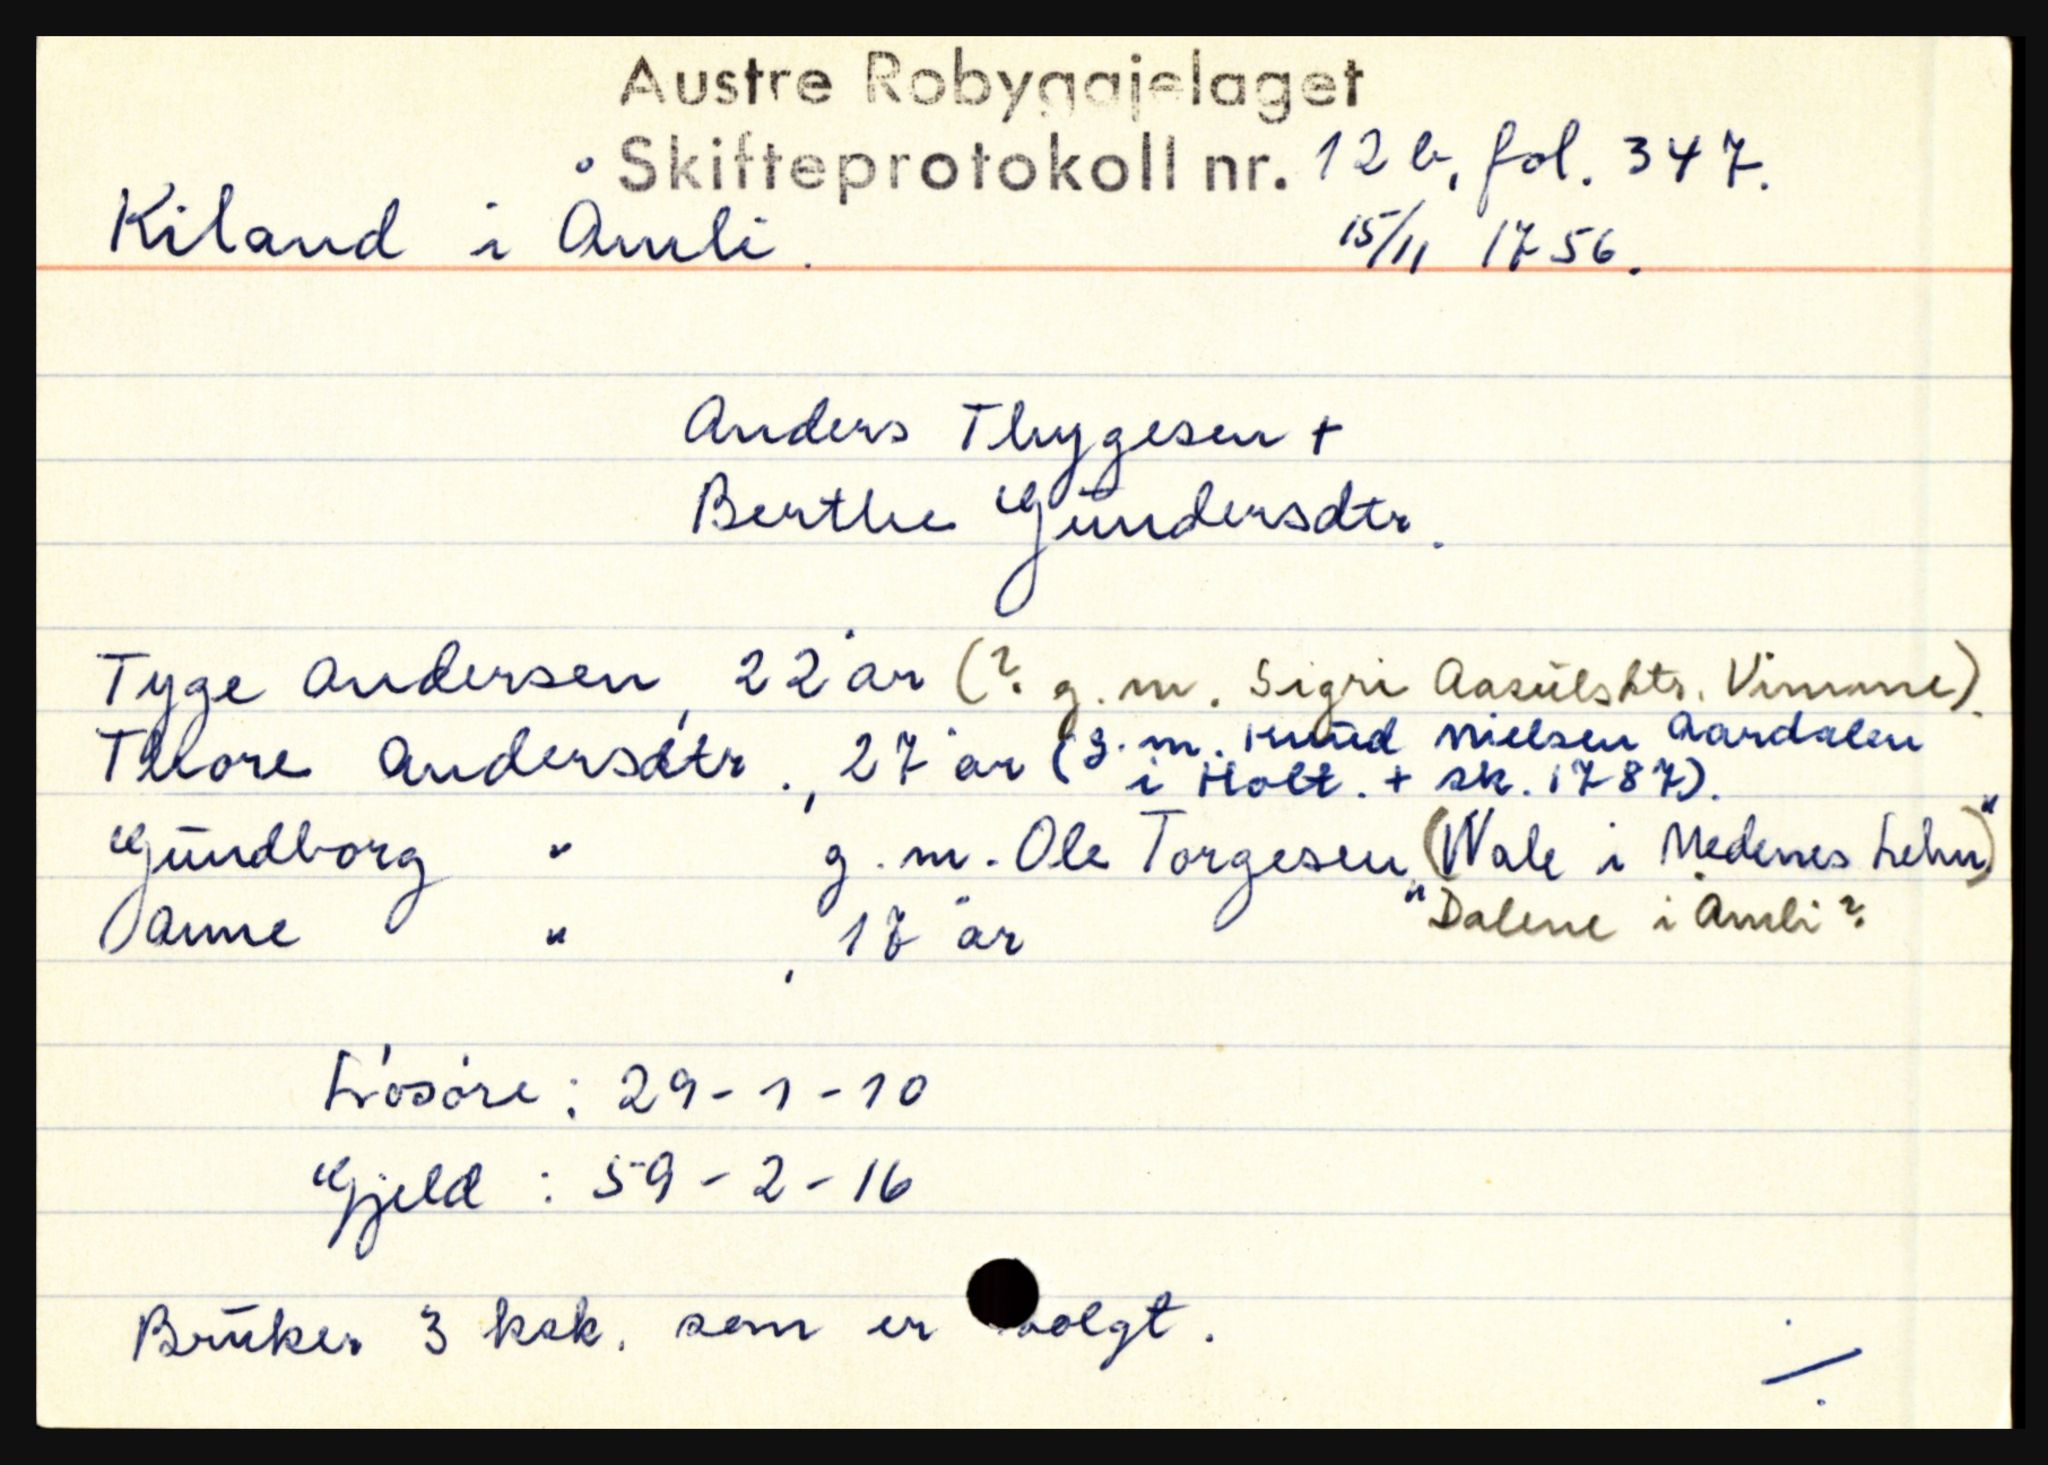 Austre Robyggjelaget
Skifteprotokoll nr. 12 b, fol. 347.
Kiland i Åmli. 15/11 1756.
Anders Thygesen +
Berthe Gundersdtr.
Tyge Andersen, 22 år (? g.m. Sigri Aasulsdtr. Vimme).
Thore Andersdtr., 27 år (g.m. Knud Nielsen Aardalen
i Holt. + sk. 1787).
Gundborg " g.m. Ole Torgesen (Wale i Nedenes Lehn)"
Anne " , 17 år "Dalene i Åmli?
Lösöre: 29-1-10
Gjeld: 59-2-16
Bruker 3 ksk. som er solgt.